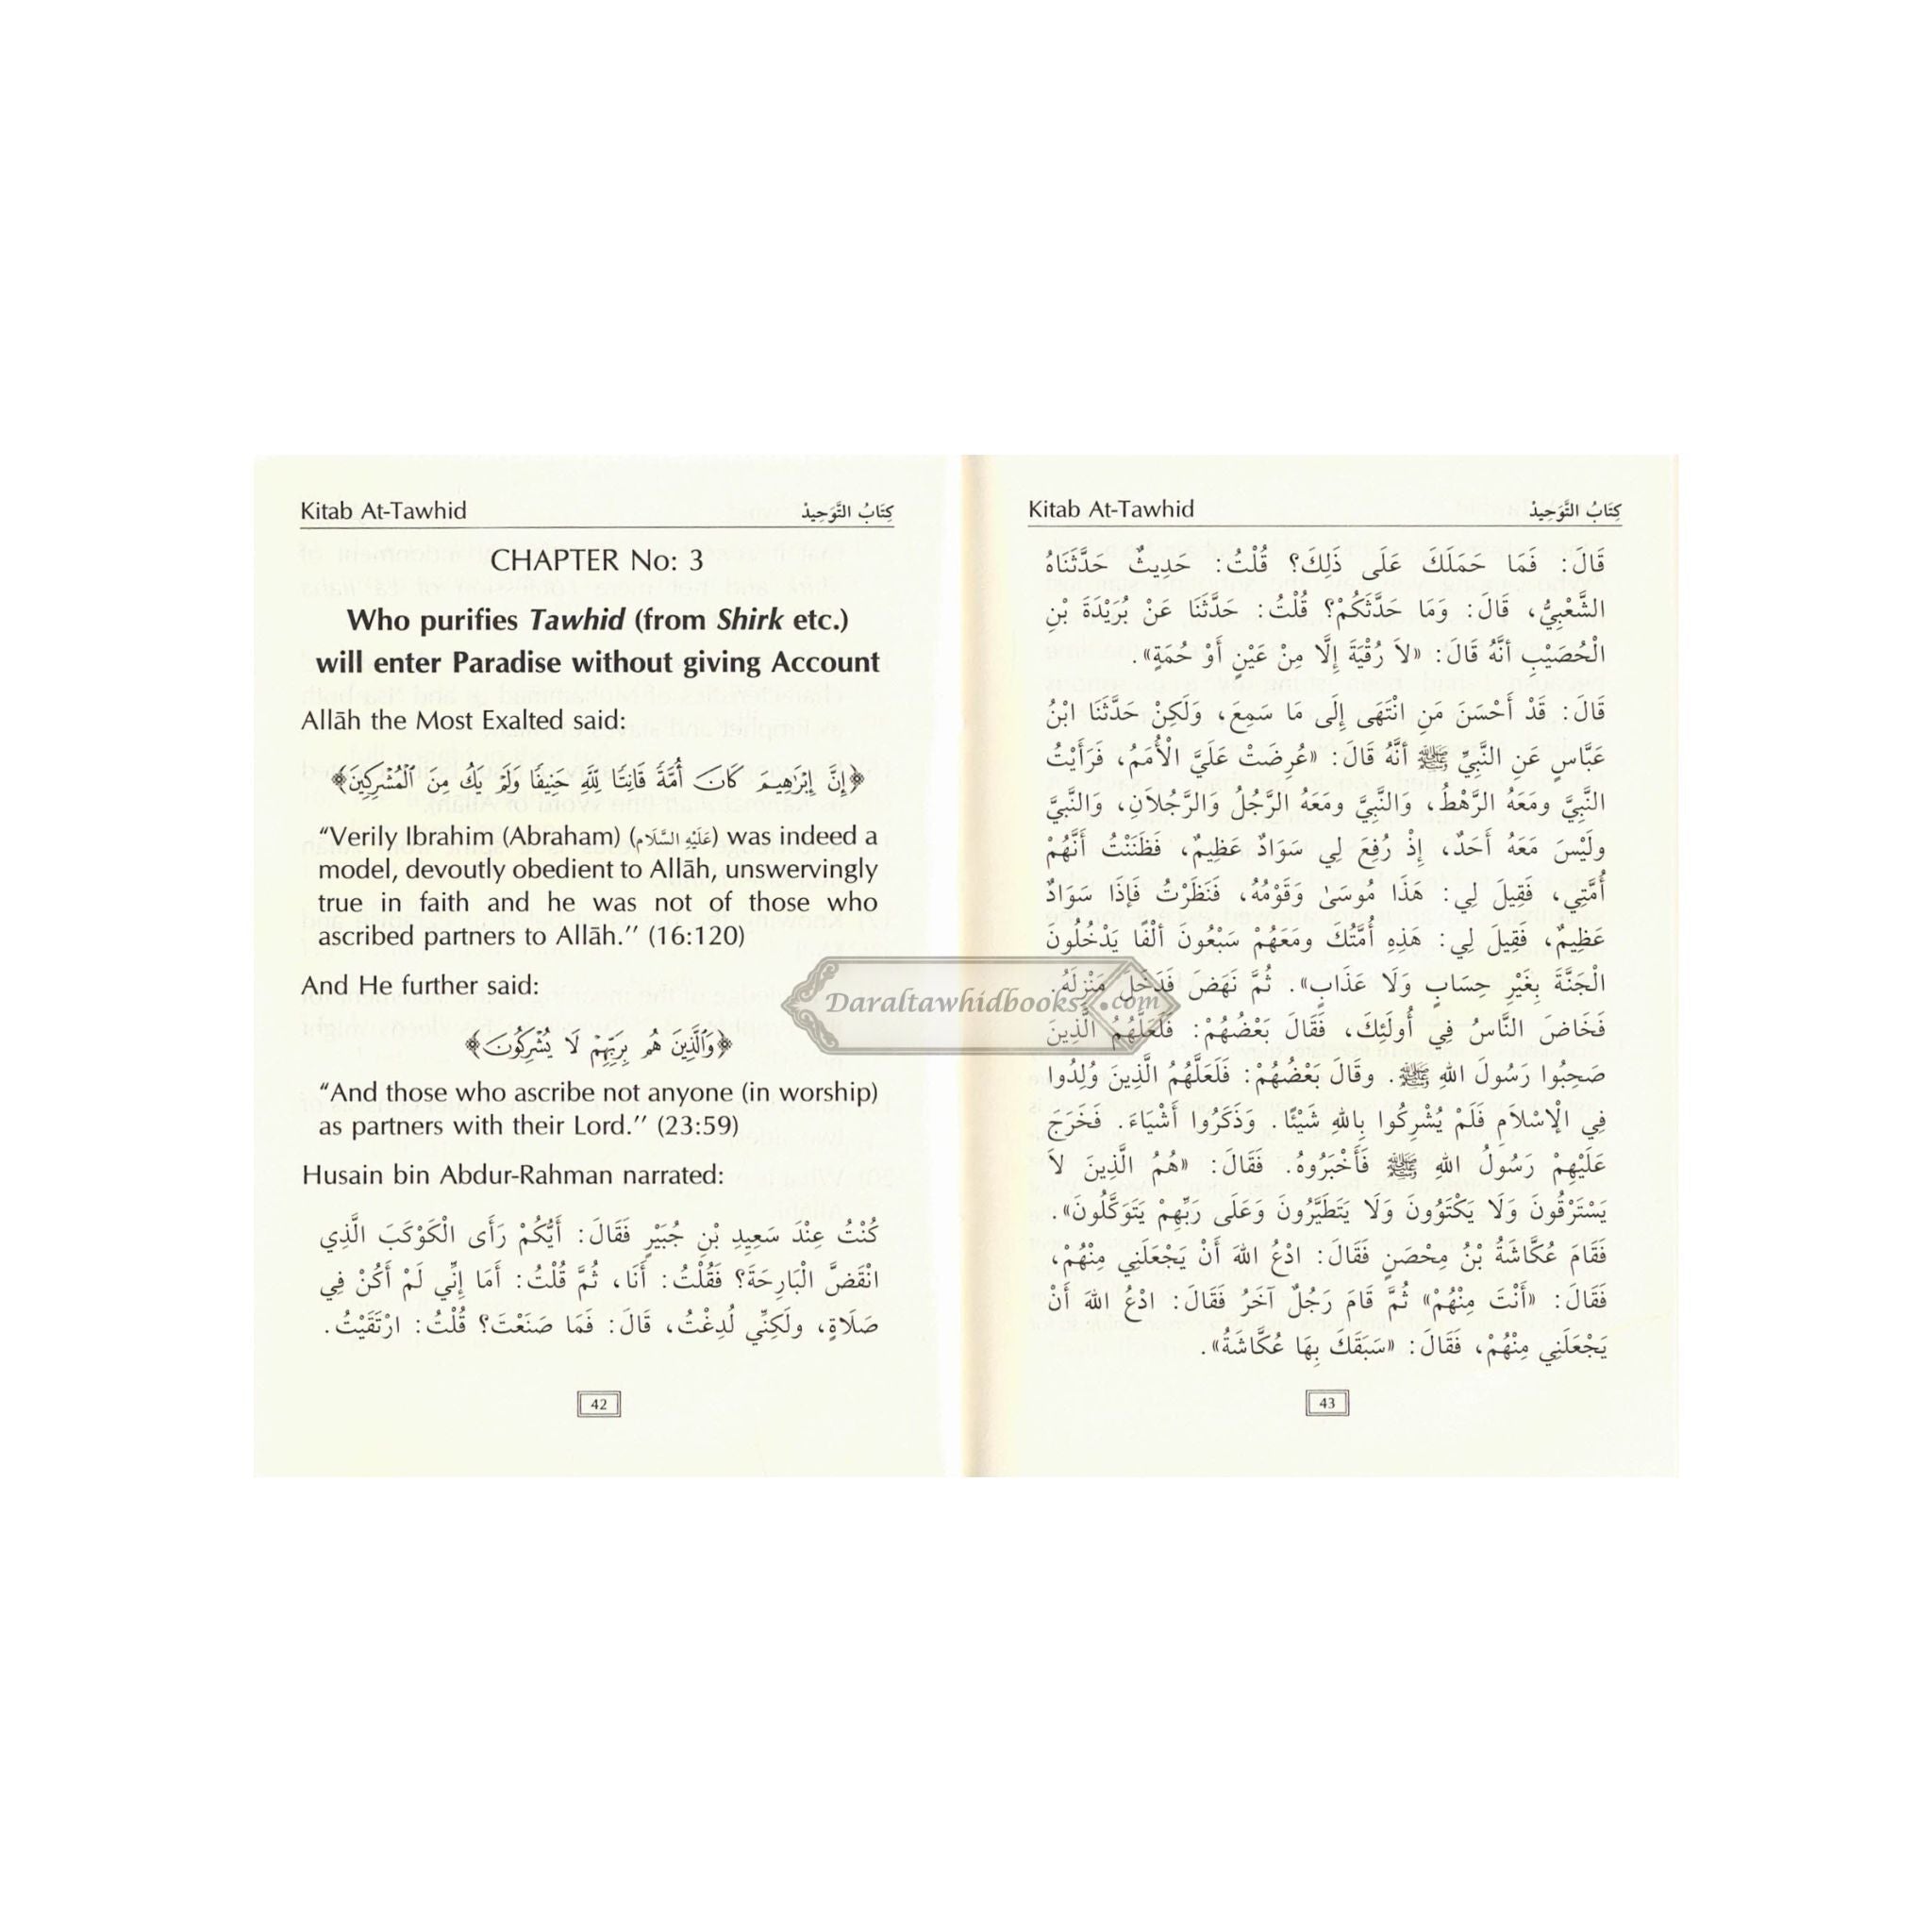 Kitab At-Tawhid كِتَابُ التَّوَحِيدْ
CHAPTER No: 3
Who purifies Tawhid (from Shirk etc.)
will enter Paradise without giving Account
Allāh the Most Exalted said:
﴿إِنَّ إِبْرَٰهِيمَ كَانَ أُمَّةً قَانِتًا لِّلَّهِ حَنِيفًا وَلَمْ يَكُ مِنَ ٱلْمُشْرِكِينَ﴾
“Verily Ibrahim (Abraham) (عَلَيْهِ السَّلَام) was indeed a
model, devoutly obedient to Allāh, unswervingly
true in faith and he was not of those who
ascribed partners to Allāh.’’ (16:120)
And He further said:
﴿وَٱلَّذِينَ هُم بِرَبِّهِمْ لَا يُشْرِكُونَ﴾
“And those who ascribe not anyone (in worship)
as partners with their Lord.’’ (23:59)
Husain bin Abdur-Rahman narrated:
كُنْتُ عِنْدَ سَعِيدِ بْنِ جُبَيْرٍ فَقَالَ: أَيُّكُمْ رَأَى الْكَوْكَبَ الَّذِي
انْقَضَّ الْبَارِحَةَ؟ فَقُلْتُ: أَنَا، ثُمَّ قُلْتُ: أَمَا إِنِّي لَمْ أَكُنْ فِي
صَلَاةٍ، ولَكِنِّي لُدِغْتُ، قَالَ: فَمَا صَنَعْتَ؟ قُلْتُ: ارْتَقَيْتُ.
42
Kitab At-Tawhid كِتَابُ التَّوَحِيدْ
قَالَ: فَمَا حَمَلَكَ عَلَى ذَلِكَ؟ قُلْتُ: حَدِيثٌ حَدَّثَنَاهُ
الشَّعْبِيُّ، قَالَ: وَمَا حَدَّثَكُمْ؟ قُلْتُ: حَدَّثَنَا عَنْ بُرَيْدَةَ بْنِ
الْحُصَيْبِ أَنَّهُ قَالَ: «لاَ رُقْيَةَ إِلَّا مِنْ عَيْنٍ أَوْ حُمَةٍ».
قَالَ: قَدْ أَحْسَنَ مَنِ انْتَهَى إِلَى مَا سَمِعَ، وَلَكِنْ حَدَّثَنَا ابْنُ
عَبَّاسٍ عَنِ النَّبِيِّ ﷺ أنَّهُ قَالَ: «عُرِضَتْ عَلَيَّ الْأُمَمُ، فَرَأَيْتُ
النَّبِيَّ ومَعَهُ الرَّهْطُ، وَالنَّبِيَّ ومَعَهُ الرَّجُلُ وَالرَّجُلاَنِ، وَالنَّبِيَّ
ولَيْسَ مَعَهُ أَحَدٌ، إِذْ رُفِعَ لِي سَوَادٌ عَظِيمٌ، فَظَنَنْتُ أَنَّهُمْ
أُمَّتِي، فَقِيلَ لِي: هَذَا مُوسَىٰ وَقَوْمُهُ، فَنَظَرْتُ فَإِذَا سَوَادٌ
عَظِيمٌ، فَقِيلَ لِي: هَذِهِ أُمَّتُكَ ومَعَهُمْ سَبْعُونَ ألْفًا يَدْخُلُونَ
الْجَنَّةَ بِغَيْرِ حِسَابٍ وَلَا عَذَابٍ». ثُمَّ نَهَضَ فَدَخَلَ مَنْزِلَهُ.
فَخَاضَ النَّاسُ فِي أُولَئِكَ، فَقَالَ بَعْضُهُمْ: فَلَعَلَّهُمُ الَّذِينَ
صَحِبُوا رَسُولَ اللهِ ﷺ. وقَالَ بَعْضُهُمْ: فَلَعَلَّهُمُ الَّذِينَ وُلِدُوا
فِي الْإِسْلاَمِ فَلَمْ يُشْرِكُوا بِاللهِ شَيْئًا. وَذَكَرُوا أَشْيَاءَ. فَخَرَجَ
عَلَيْهِمْ رَسُولُ اللهِ ﷺ فَأَخْبَرُوهُ. فَقَالَ: «هُمُ الَّذِينَ لاَ
يَسْتَرْقُونَ وَلَا يَكْتَوُونَ وَلَا يَتَطَيَّرُونَ وَعَلَى رَبِّهِمْ يَتَوَكَّلُونَ».
فَقَامَ عُكَّاشَةُ بْنُ مِحْصَنٍ فَقَالَ: ادْعُ اللهَ أَنْ يَجْعَلَنِي مِنْهُمْ،
فَقَالَ: «أَنْتَ مِنْهُمْ» ثُمَّ قَامَ رَجُلٌ آخَرُ فَقَالَ: ادْعُ اللهَ أَنْ
يَجْعَلَنِي مِنْهُمْ، فَقَالَ: «سَبَقَكَ بِهَا عُكَّاشَةُ».
43
Daraltawhidbooks.com